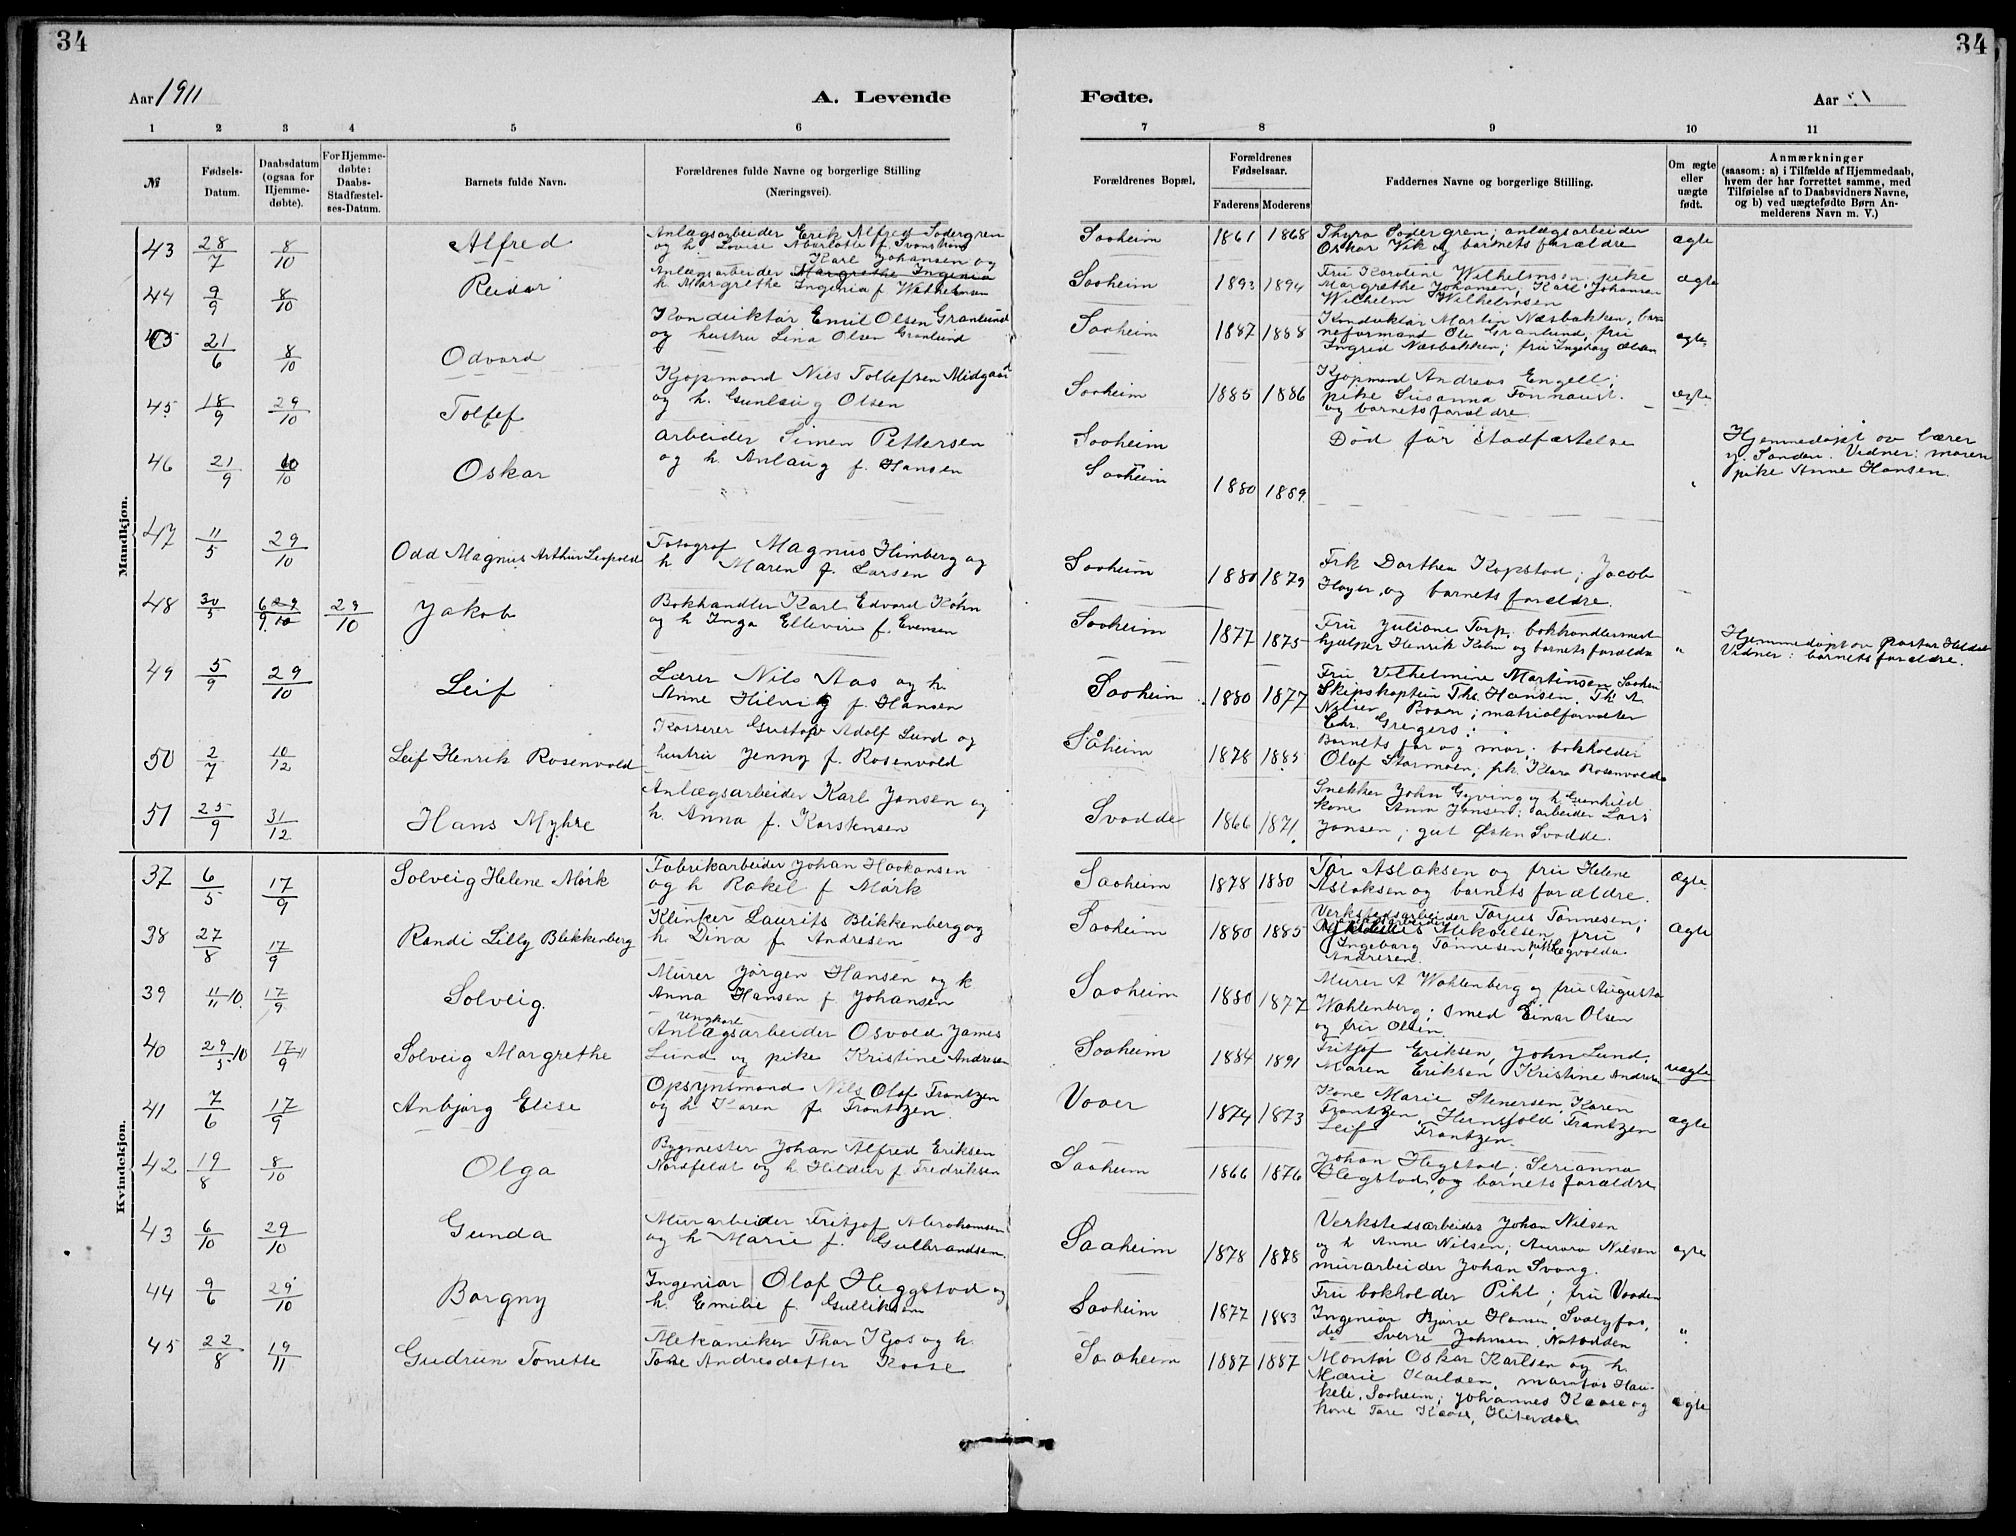 34
34
Aar 1911
A. Levende
Fødte.
Aar
1 2 3 4 5 6 7 8 9 10 11
№
Fødsels-Datum.
Daabsdatum (ogsaa for Hjemme-døbte).
For Hjemme-døbte: Daabs-Stadfæstel-ses-Datum.
Barnets fulde Navn.
Forældrenes fulde Navne og borgerlige Stilling (Næringsvei).
Forældrenes Bopæl.
Forældrenes Fødselsaar.
Faderens Moderens
Faddernes Navne og borgerlige Stilling.
Om ægte eller uægte født.
Anmærkninger
(saasom: a) i Tilfælde af Hjemmedaab,
hvem der har forrettet samme, med
Tilføielse af to Daabsvidners Navne,
og b) ved uægtefødte Børn An-
melderens Navn m. V.)
Mandkjøn.
43 28/7 8/10 Alfred
Anlægsarbeider Erik Alfred Södergren
og h. Lovise
Saaheim 1861 1868
Thyra Södergren; anlægsarbeider
Oskar Vik og barnets forældre
ægte
44 9/9 8/10 Reidar
Karl Johansen og
Anlægsarbeider Margrethe Ingenia
h. Margrethe Ingenia f. Wilhelmsen
Saaheim 1893 1894
Fru Karoline Wilhelmsen, pike
Margrethe Johansen, Karl Johansen
Wilhelm Wilhelmsen
ægte
45 21/6 8/10 Odvard
Konduktør Emil Olsen Granlund
og hustru Lina Olsen Granlund
Saaheim 1887 1888
Konduktør Martin Næsbakken,
neformand Ole Granlund, fru
Ingrid Næsbakken; fru Ingeborg Olsen
ægte
45 18/9 29/10 Tollef
Kjøpmand Nils Tollefsen Midgaard
og h. Gunlaug Olsen
Saaheim 1885 1886
Kjøpmand Andreas Engell;
pike Susanna
og barnets forældre
ægte
46 21/9 10/10 Oskar
Arbeider Simen Pettersen
og h. Anlaug f. Hansen
Saaheim
Saaheim 1880 1889
Død før stadfæstelse
Hjemmedøpt av lærer
Y. Sandau. Vidner: moren
pike Anne Hansen.
47 11/5 29/10 Odd Magnus Arthur Leopold
Fotograf Magnus Himberg og
h. Maren f. Larsen
Saaheim 1880 1879
Frk Dorthea Kopstad; Jacob
Høyer, og barnets forældre.
48 30/5 29/10 Jakob
Bokhandler Karl Edvard Köhn
og h Inga Ellevine f. Evensen
Saaheim 1877 1875
Fru Juliane Torp, bokhandlermed-
hjælper Henrik Køhn og barnets forældre
"
Hjemmedøpt av Pastor
Vidner: barnets forældre.
49 5/9 29/10 Leif
Lærer Nils Aas og h.
Anne Hilvig f. Hansen
Saaheim 1880 1877
Fru Vilhelmine Martinsen Saaheim
Skipskaptein Ths. Hansen, Th. A.
Nilsen Boarn; matrialforvalter
Chr. Gregers:
50 2/7 10/12 Leif Henrik Rosenvold
Kasserer Gustav Adolf Lund og
hustru Jenny f. Rosenvold
Såheim 1878 1885
Barnets far og mor; bokholder
Olaf Stormoen; pk. Klara Rosenvold
51 25/9 31/12 Hans Myhre
Anlægsarbeider Karl Jonsen og
h. Anna f. Karstensen
Svadde 1866 1871
Snekker John Gyving og h. Gunhild
kone Anna Jonsen; arbeider Lars
Jonsen; gut Østen Svadde.
Kvindekjøn.
37 6/5 17/9 Solveig Helene Mørk
Fabrikarbeider Johan Haakansen
og h Rakel f Mørk
Saaheim 1878 1880
Tor Aslaksen og fru Helene
Aslaksen og barnets forældre.
ægte
38 27/8 17/9 Randi Lilly Blekkenberg
Klinker Laurits Blikkenberg og
h. Dina f. Andresen
Saaheim 1880 1885
Verkstedsarbeider Torjus Tønnesen;
Mikaelsen, fru
Ingeborg Tønnesen, pike
Andresen.
ægte
39 11/11 10 17/9 Solveig.
Murer Jørgen Hansen og h
Anna Hansen f. Johansen
Saaheim 1880 1877
Murer A Wahlenberg og fru Augusta
Wahlenberg; smed Einar Olsen
og fru Olsen
40 29/5 10 17/9 11 Solveig Margrethe
ungkarl
Anlægsarbeider Osvald James
Lund og pike Kristine Andresen
Saaheim 1884 1891
Fritjof Eriksen, John Lund,
Maren Eriksen Kristine Andresen
uægte
41 7/6 17/9 Anbjørg Elise
Opsynsmand Nils Olaf Frantzen
og h Karen f. Frantzen.
Vaaer 1874 1873
Kone Marie Stenersen, Karen
Frantzen, Hernsfold Frantzen
Leif Frantzen.
ægte
42 19/8 8/10 Olga
Bygmester Johan Alfred Eriksen
Nordfeldt og h Hildur f Fredriksen
Saaheim 1866 1876
Johan Hegstad; Serianna
Hegstad, og barnets forældre
43 6/10 29/10 Gunda
Murarbeider Fritjof Abrahamsen
og h Marie f. Gulbrandsen.
Saaheim 1878 1878
Verkstedsarbeider Johan Nilsen
og h Anne Nilsen; Aurora Nilsen
murarbeider Johan Svang.
ægte
44 9/6 29/10 Borgny
Ingeniør Olaf Heggstad og
h. Emilie f. Gulliksen
Saaheim 1877 1883
Fru bokholder Pihl; fru Vaaden
Ingeniør Bjarne Hansen, Svælgfos,
do Sverre Johnsen, Notodden
"
45 22/8 19/11 Gudrun Tonette
Mekaniker Thor Kjos og h.
Tone Andresdatter Kaase
Saaheim 1887 1887
Montør Oskar Karlsen og h.
Marie Karlsen, montør Hau-
keli, Saaheim; Johannes Kaase og
kone Tore Kaase, Hiterdal
ægte